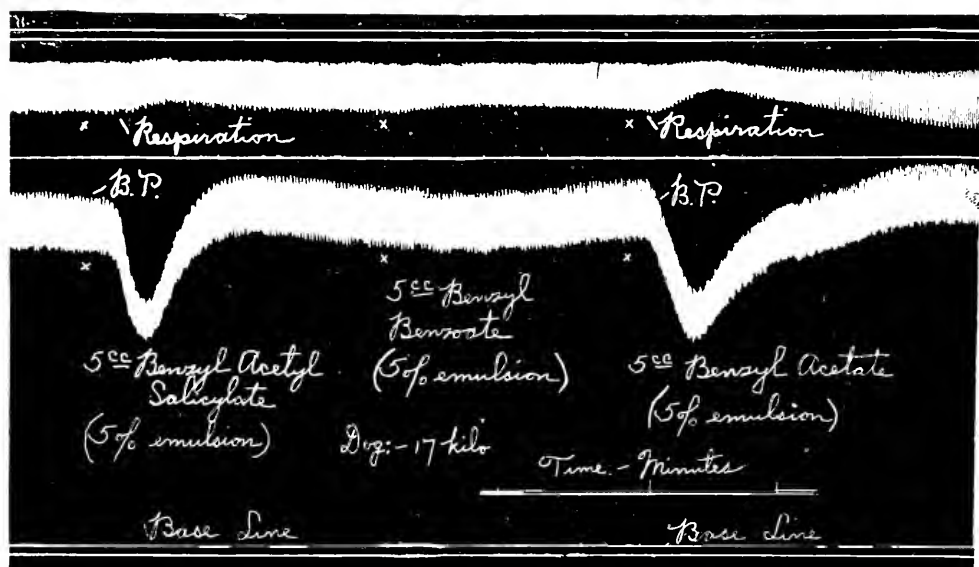 x Respiration x x Respiration
B.P. B.P.
x x x
5 cc Benzyl Acetyl
Salicylate
(5% emulsion)
5 cc Benzyl
Benzoate
(5% emulsion)
5 cc Benzyl Acetate
(5% emulsion)
Dog:- 17 kilo
Time.- Minutes
Base Line Base Line